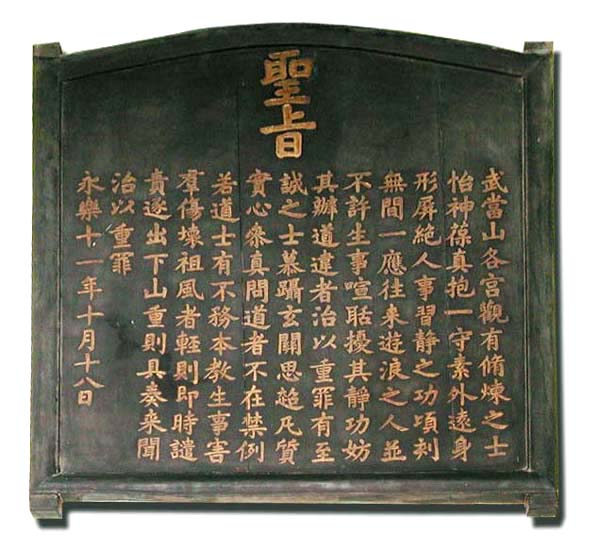 聖旨
武當山各宮觀有脩煉之士
怡神葆真抱一守素外遠身
形屏絕人事習静之功頃刻
無間一應往来遊浪之人並
不許生事喧聒擾其静功妨
其辦道違者治以重罪有至
誠之士慕躡玄關思超凡質
實心叅真問道者不在禁例
若道士有不務本教生事害
羣傷壊祖風者輕則即時譴
責逐出下山重則具奏来聞
治以重罪
永樂十一年十月十八日